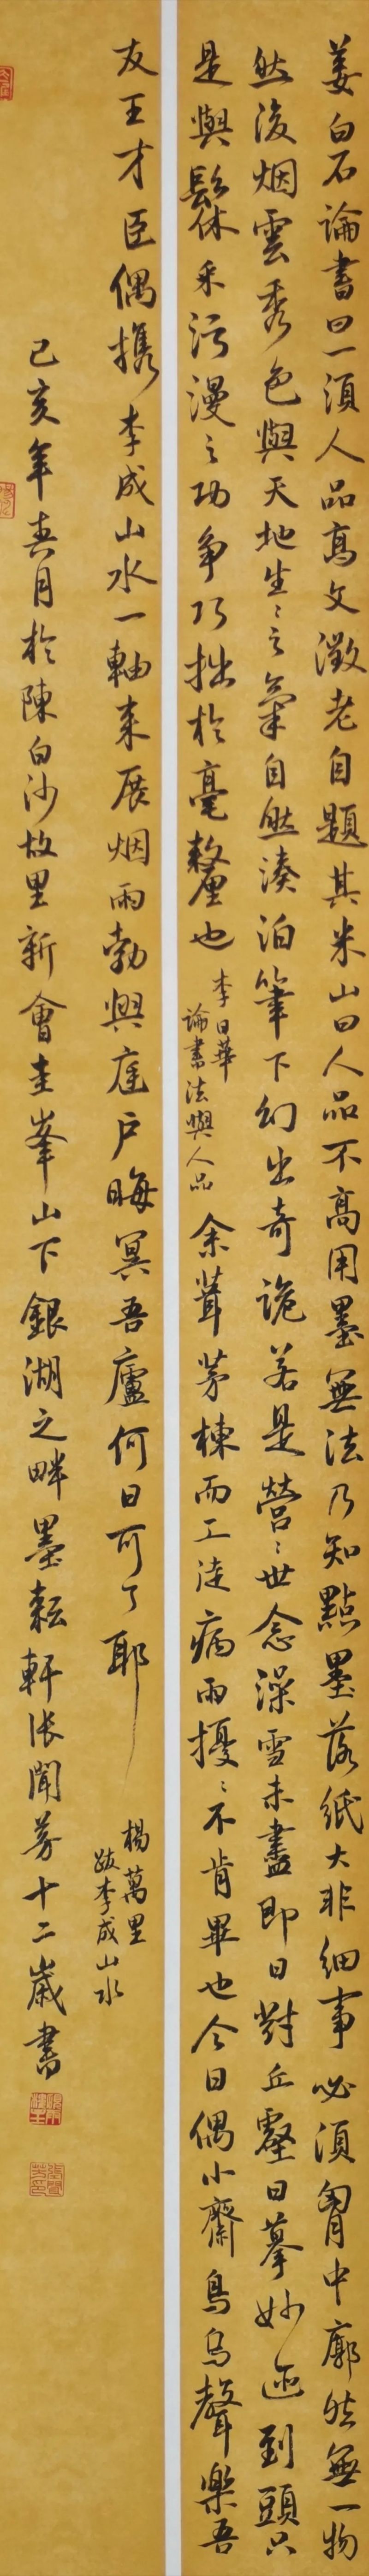 姜白石論書曰一須人品高文徵老自題其米山曰人品不高用墨無法乃知點墨落紙大非細事必須胷中廓然無一物
然後烟雲秀色與天地生〻之氣自然湊泊筆下幻出奇詭若是營〻世念澡雪未盡即日對丘壑日摹妙迹到頭只
是與髹休采污漫之功爭巧拙於毫釐也
李日華
論書法與人品
余葺茅棟而工徒病雨擾〻不肯畢也今日偶小齋鳥烏聲樂吾
友王才臣偶攜李成山水一軸来展烟雨勃興庭户晦冥吾廬何日可了耶
楊萬里
跋李成山水
己亥年春月於陳白沙故里新會圭峯山下銀湖之畔墨耘軒張聞芳十二歲書